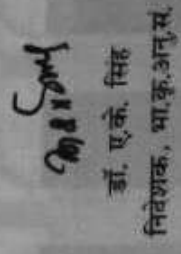 डॉ. ए.के. सिंह
निदेशक, भा.कृ.अनु.सं.